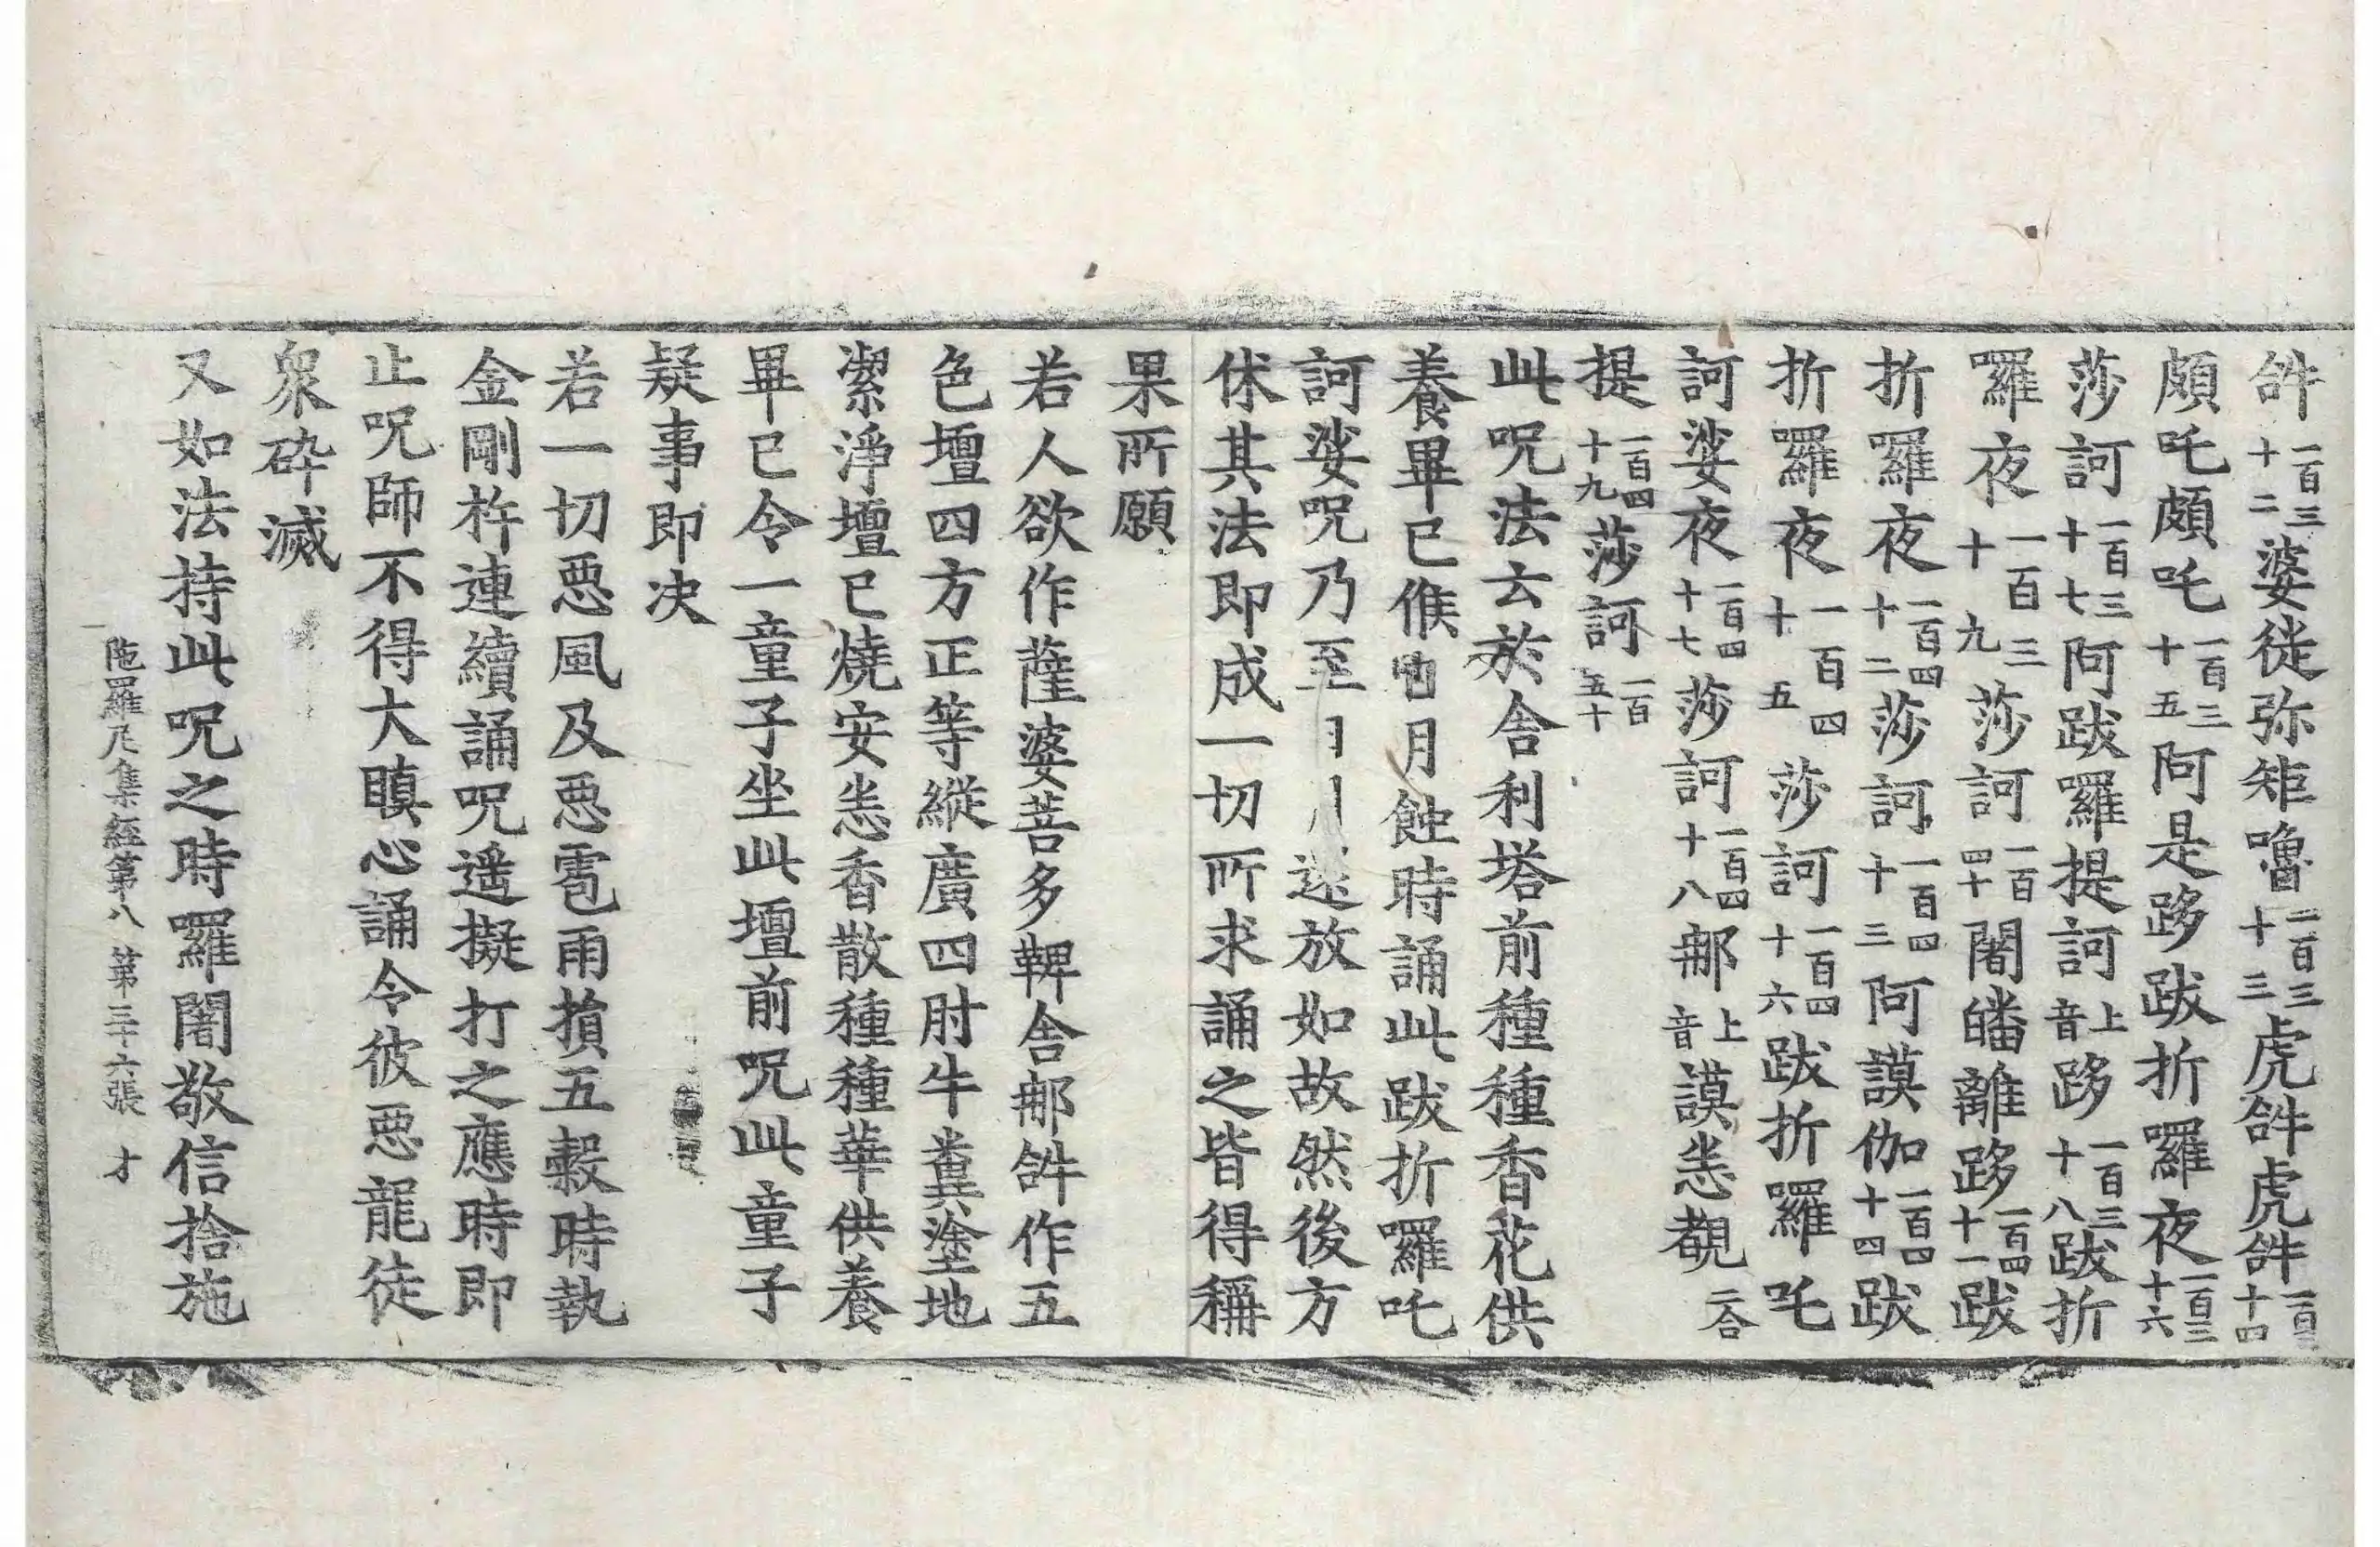 𤙖一百三十二婆徙弥矩嚕一百三十三虎𤙖虎𤙖一百三十四
頗吒頗吒一百三十五阿是跢跋折囉夜一百三十六
莎訶一百三十七阿跋囉提訶上音跢一百三十八跋折
囉夜一百三十九莎訶一百四十闍皤離跢一百四十一跋
折囉夜一百四十二莎訶一百四十三阿謨伽一百四十四跋
折囉夜一百四十五莎訶一百四十六跋折囉吒
訶娑夜一百四十七莎訶一百四十八那上音謨恙覩二合
提一百四十九莎訶一百五十
此呪法云於舍利塔前種種香花供
養畢已候白月蝕時誦此跋折囉吒
訶娑呪乃至日月還放如故然後方
休其法即成一切所求誦之皆得稱
果所願
若人欲作薩婆菩多鞞舍那𤙖作五
色壇四方正等縱廣四肘牛糞塗地
潔淨壇已燒安悉香散種種華供養
畢已令一童子坐此壇前呪此童子
疑事即決
若一切惡風及惡雹雨損五穀時執
金剛杵連續誦呪遥擬打之應時即
止呪師不得大瞋心誦令彼惡龍徒
衆碎滅
又如法持此呪之時囉闍敬信捨施
陁羅尼集經第八 第三十六張 才